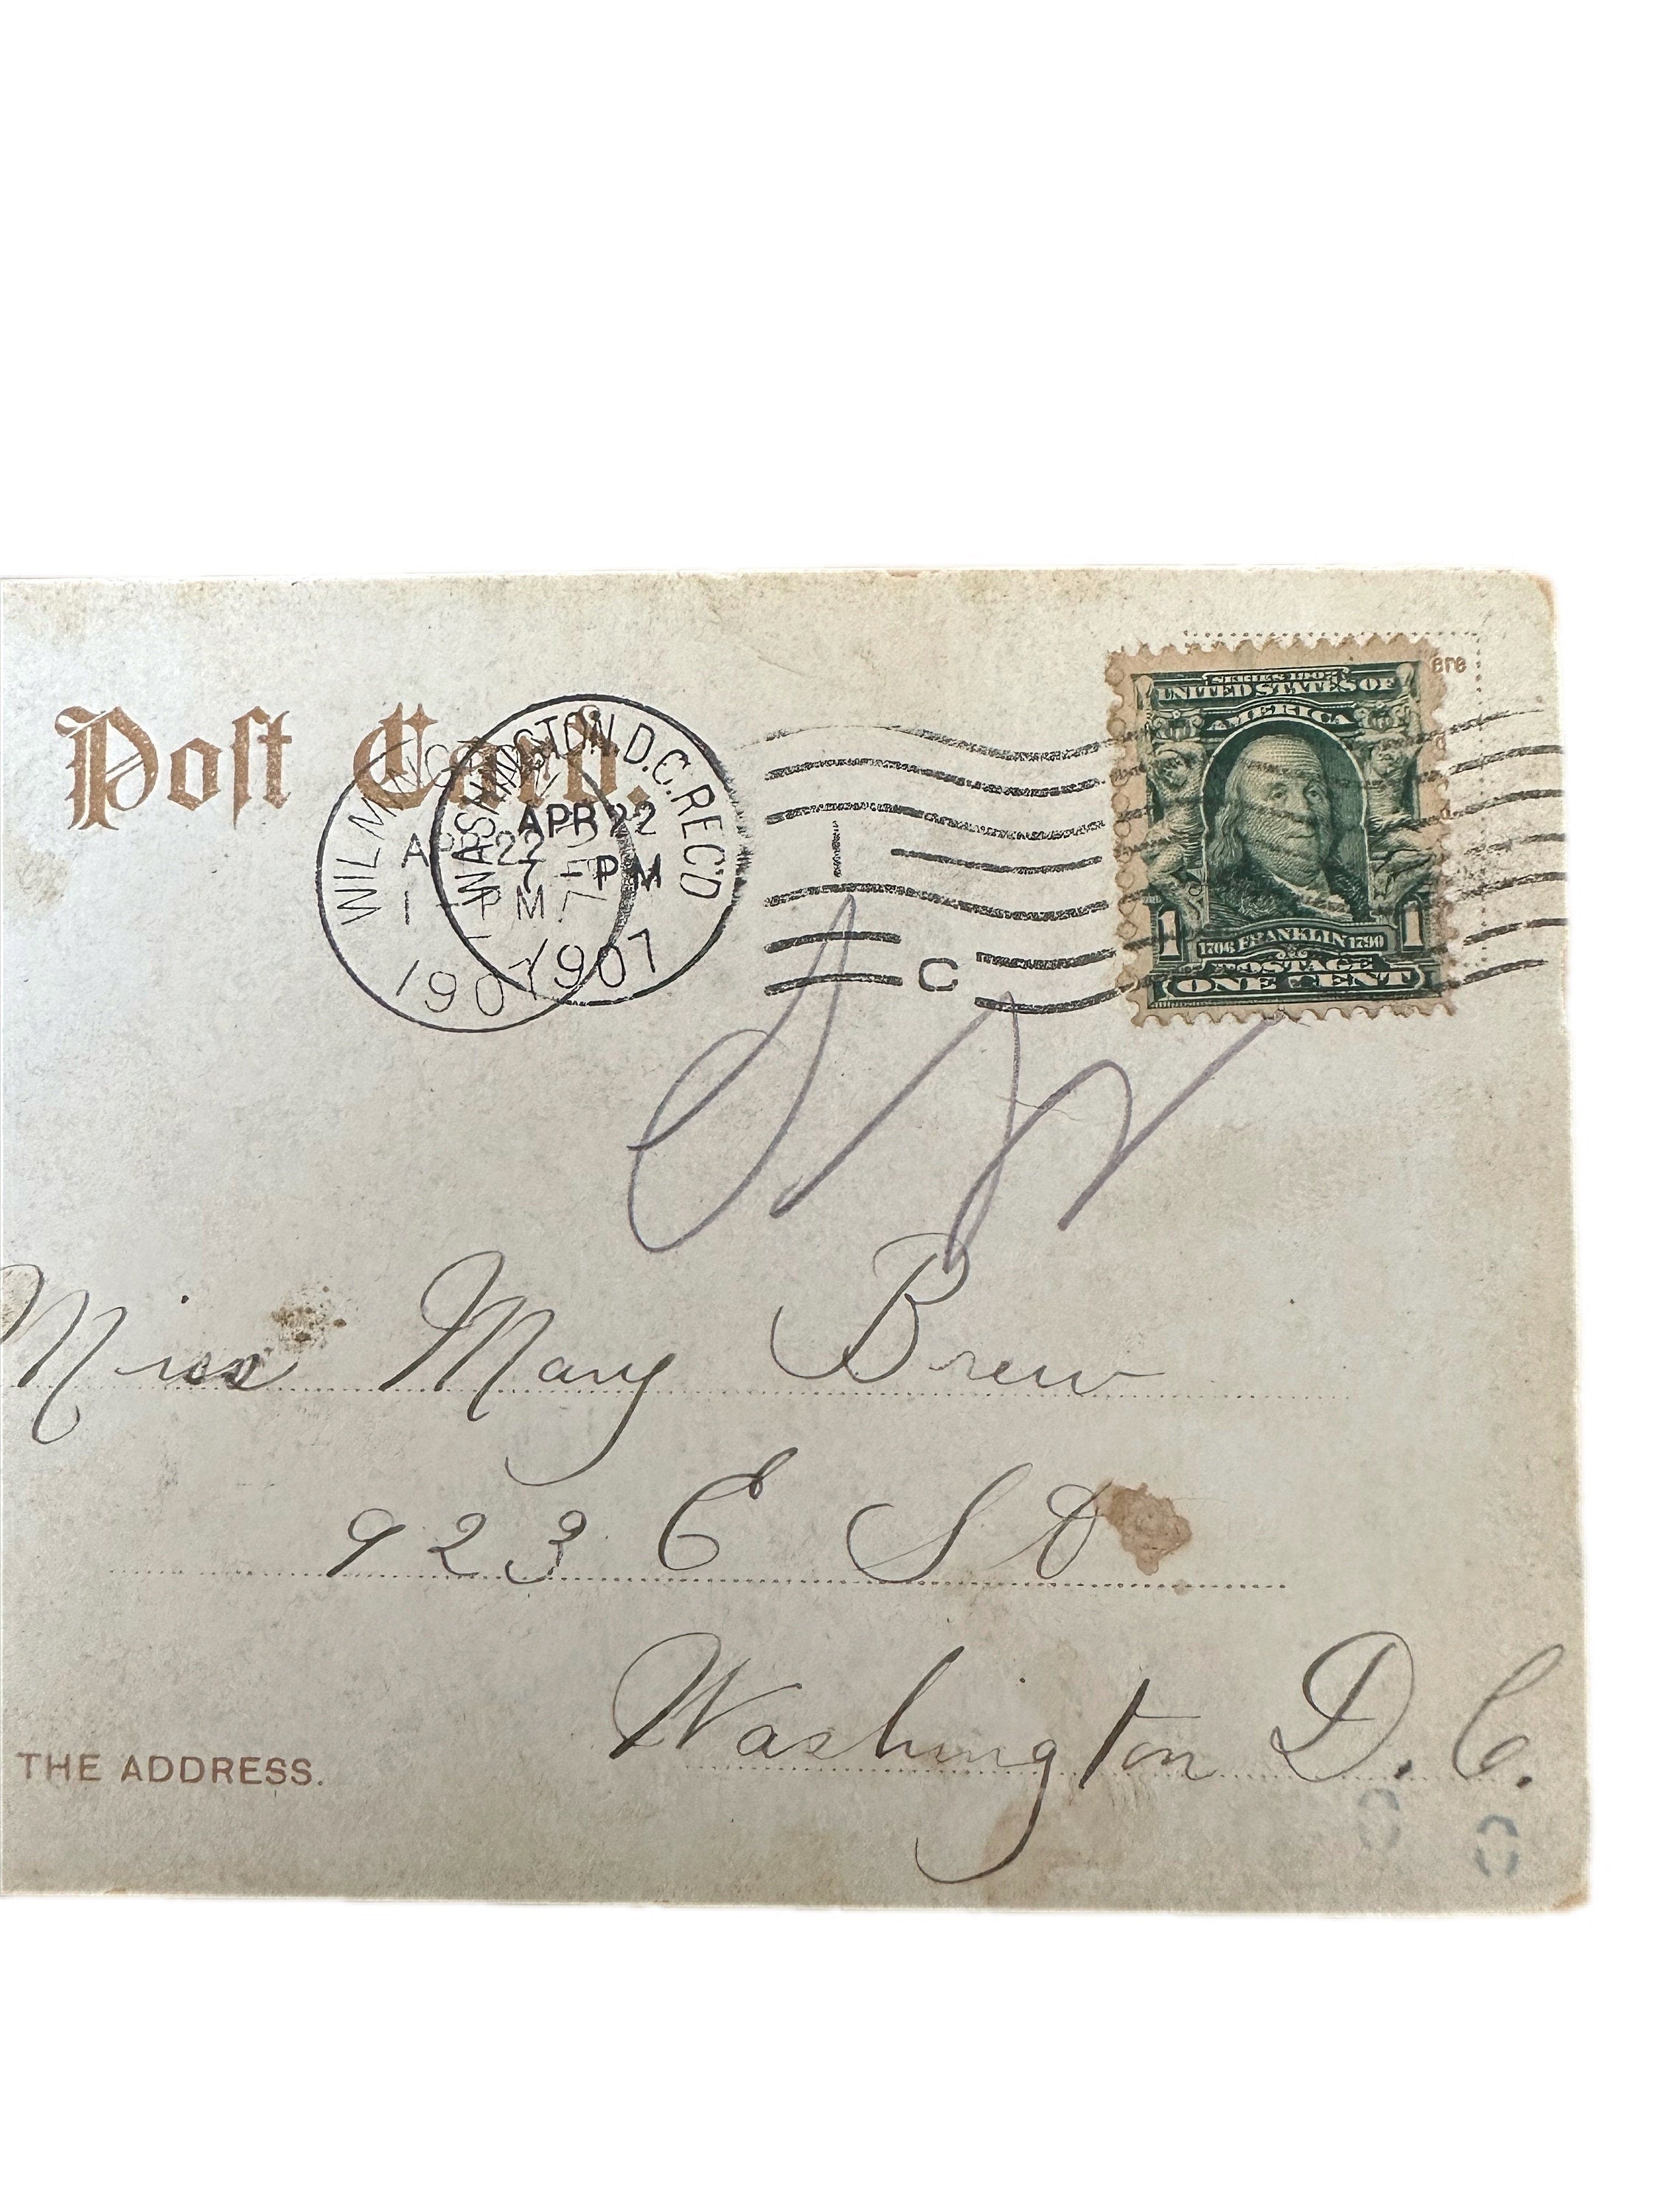 Post Card.
WASHINGTON, D.C. REC'D
APR 22
7 PM
1907
APR 22
1 PM
1907
1
C
ere
SERIES 1902
UNITED STATES OF
AMERICA
1 1706 FRANKLIN 1790 1
POSTAGE
ONE CENT
Miss Mary Brew
923 E St
Washington D. C.
THE ADDRESS.